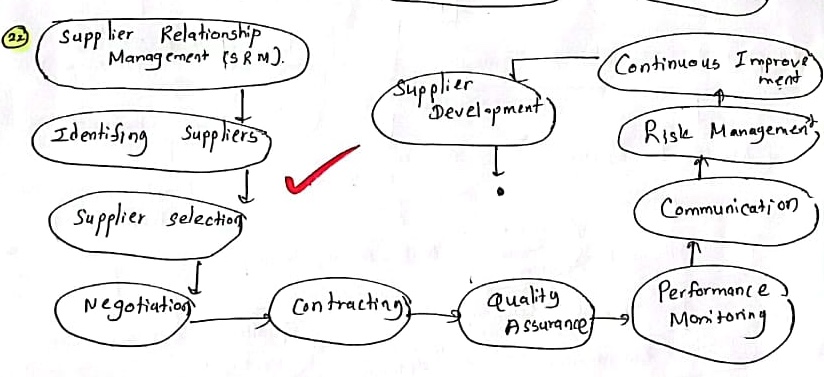 22
Supplier Relationship
Management (SRM).
Identifing Suppliers
Supplier selection
Negotiation
Contracting
Quality
Assurance
Performance
Monitoring
Communication
Risk Management
Continuous Improve
ment
Supplier
Development